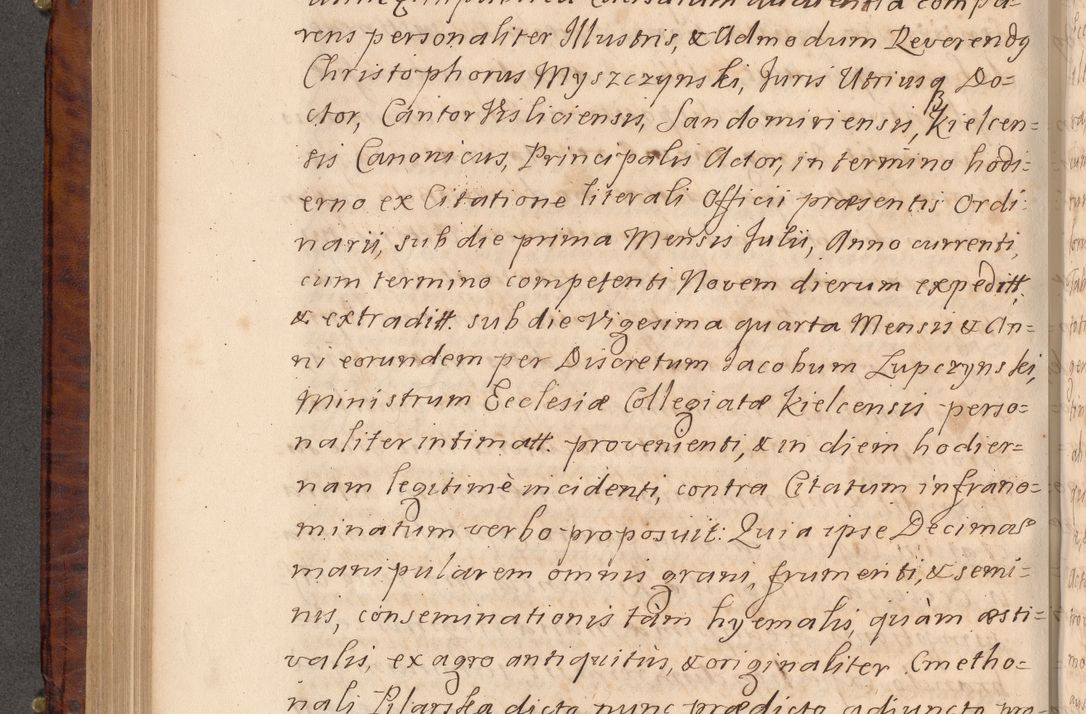 rens personaliter Illustris, & Admodum Reverendg
Christophorus Myszczynski, Juris Utriusq Do=
ctor, Cantor Visliciensis, Sandomiriensis, Kielcen=
sis Canonicus, Principalis Actor, in termino hodi=
erno ex Citatione literali Officii præsentis Ordi
narii, sub die prima Mensis Julii, Anno currenti,
cum termino competenti Novem dierum expeditt,
& extraditt. sub die Vigesima quarta Mensis & An=
ni eorundem per Discretum Jacobum Lupczynski,
Ministrum Ecclesiæ Collegiatæ Kielcensis perso=
naliter intimatt. provenienti, & in diem hodier=
nam legitimè incidenti, contra Citatum infrano=
minatum verbo proposuit: Quia ipse Decimas
manipularem omnis grani, frumenti, & semi=
nis, conseminationis tàm hyemalis, quàm æsti=
valis, ex agro antiquitùs, & originaliter Cmetho=
nali Pilarska dicto, nunc prædicto adjuncto